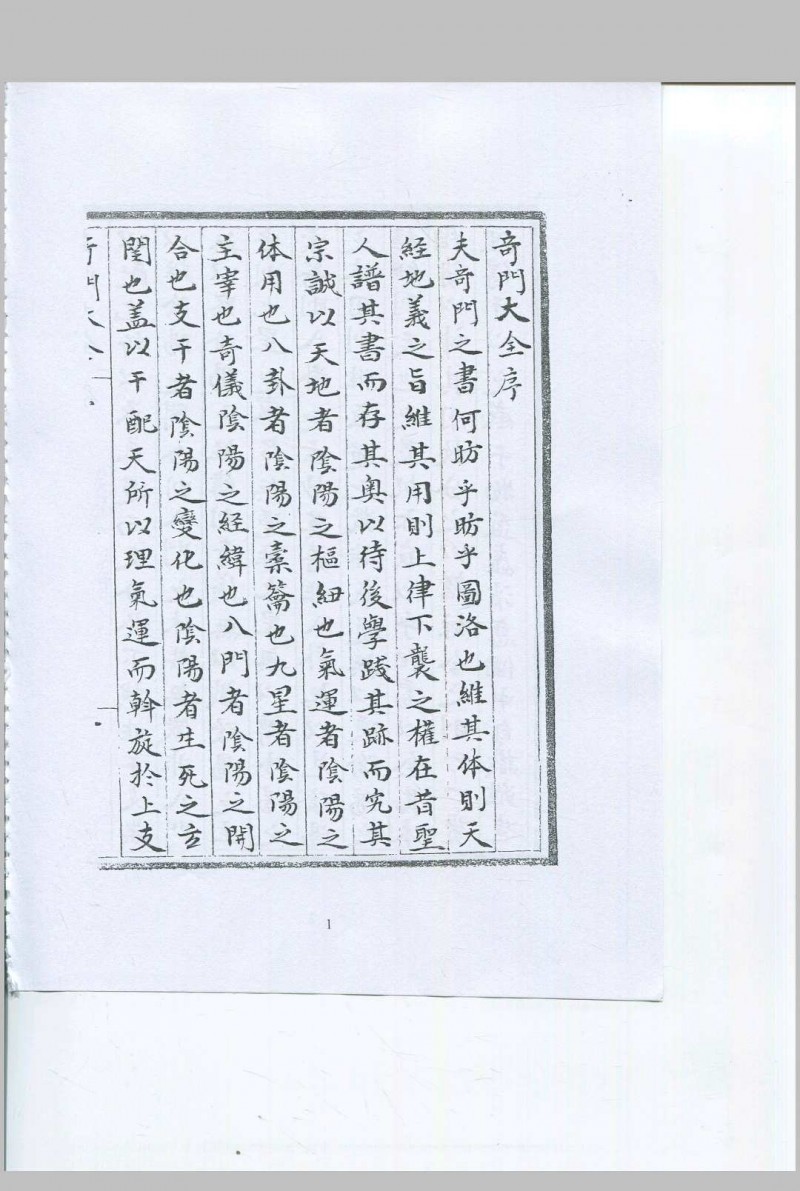 奇門大全序
夫奇門之書何昉乎昉乎圖洛也維其体則天
經地義之旨維其用則上律下襲之權在昔聖
人譜其書而存其奥以待後學踐其跡而究其
宗誠以天地者陰陽之樞紐也氣運者陰陽之
体用也八卦者陰陽之橐籥也九星者陰陽之
主宰也奇儀陰陽之经緯也八門者陰陽之開
合也支干者陰陽之變化也陰陽者生死之玄
関也盖以干配天所以理氣運而斡旋於上支
奇門大全
1